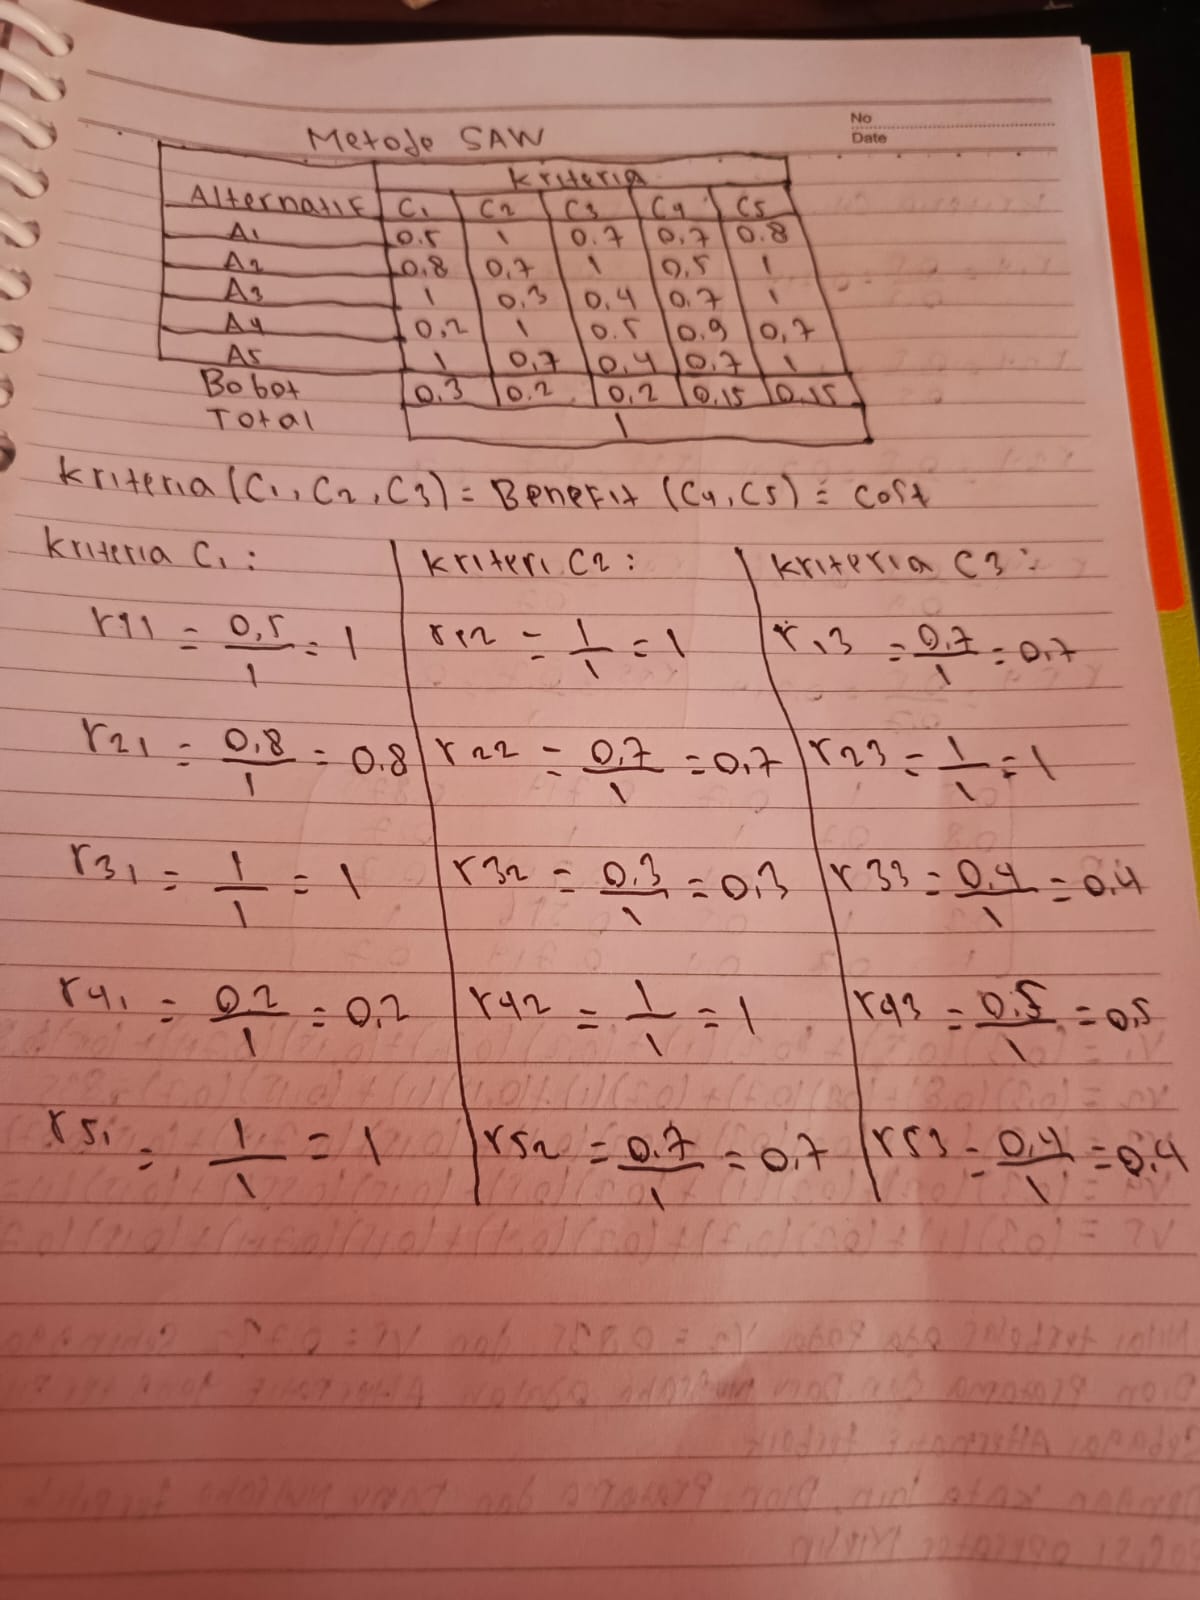 No
Date
Metode SAW
Alternatif Kriteria
C1 C2 C3 C4 C5
A1 0.5 1 0.7 0.7 0.8
A2 0.8 0,7 1 0,5 1
A3 1 0,3 0,4 0,7 1
A4 0,2 1 0.5 0,9 0,7
A5 1 0,7 0,4 0,7 1
Bobot 0.3 0.2 0,2 0,15 0,15
Total 1
Kriteria (C1, C2, C3) = Benefit (C4, C5) = Cost
Kriteria C1 :
r11 = 0,5/1 = 1
r21 = 0,8/1 = 0.8
r31 = 1/1 = 1
r41 = 0,2/1 = 0,2
r51 = 1/1 = 1
Kriteri C2 :
r12 = 1/1 = 1
r22 = 0,7/1 = 0,7
r32 = 0,3/1 = 0,3
r42 = 1/1 = 1
r52 = 0.7/1 = 0,7
Kriteria C3 :
r13 = 0,7/1 = 0,7
r23 = 1/1 = 1
r33 = 0,4/1 = 0,4
r43 = 0,5/1 = 0,5
r53 = 0,4/1 = 0,4